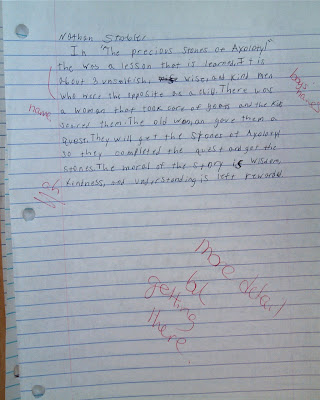 Nathan Stabler
In "The precious stones of Axolotyl"
the was a lesson that is learned. It is
about 3 unselfish, wise, and kind men
who were the opposite as a child. There was
a woman that took care of goats and the kids
scared them. The old woman gave them a
quest. They will get the stones of Axolotyl
so they completed the quest and got the
stones. The moral of the story is wisdom,
kindness, and understanding is left reward.
name
more detail
but
getting
there